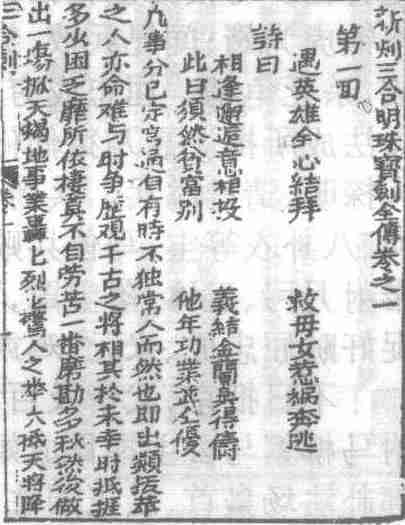 新刻三合明珠寶劍全傳卷之一
第一回
遇英雄全心結拜 救母女惹禍奔逃
詩曰
相逢邂逅意相投 義結金蘭真得儔
此日須然貧富别 他年功業並公優
凡事分已定窮通自有時不獨常人而然也即出類拔萃
之人亦命难与时争歷觀千古之將相其於未幸时抵捱
多少困乏靡所依棲真不自勞苦一畨磨勘多秋然後做
出一塲掀天揭地事業轟匕烈匕驚人之举六𠇍天将降
三合劍 卷一